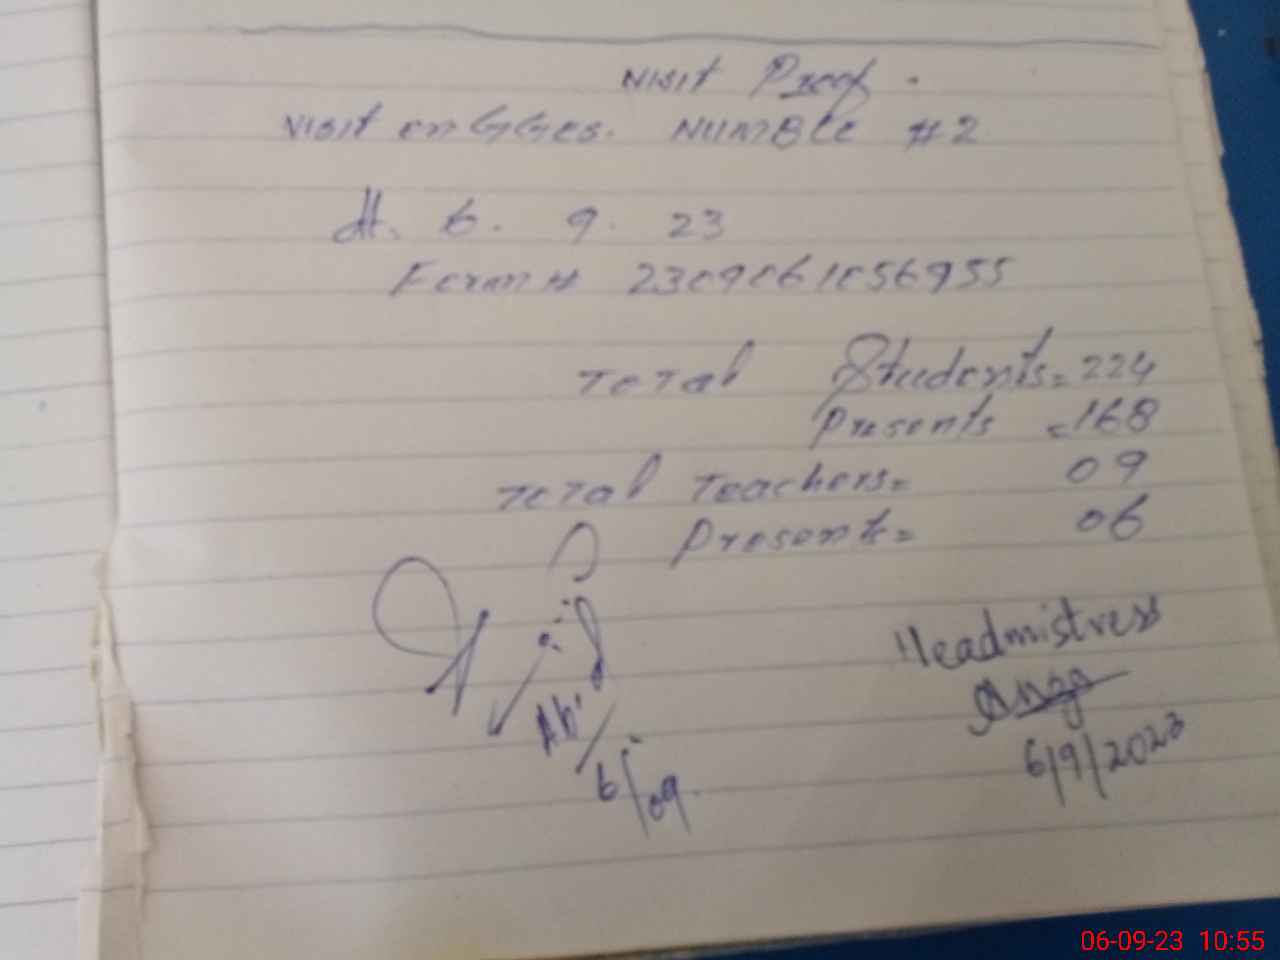 Visit Proof.
Visit on GGCS. NUMBLE #2
dt. 6. 9. 23
Form # 2309061056955
Total Students = 224
Presents = 168
Total Teachers = 09
Presents = 06
Headmistress
6/9/2023
6/09.
06-09-23 10:55